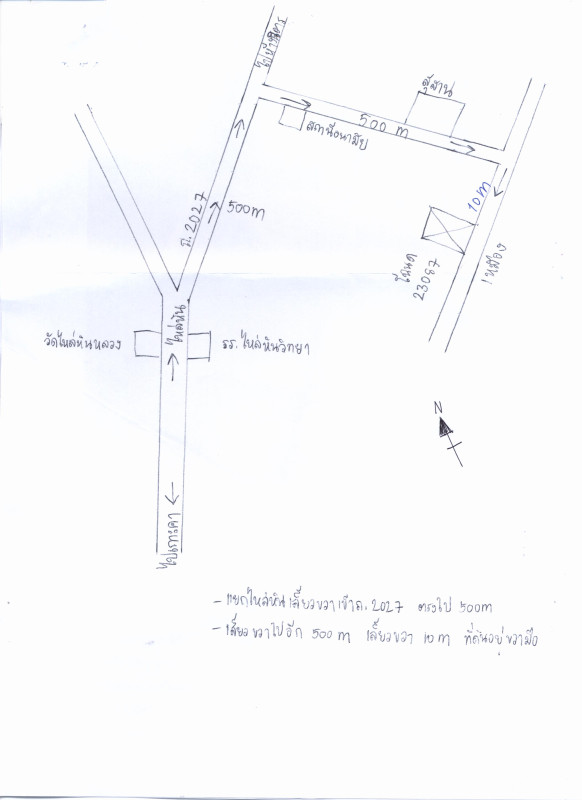 สุสาน
500 m
สถานีอนามัย
10 m
ถ. 2027
500m
โฉนด
23087
เหมือง
ไหล่หิน
วัดไหล่หินหลวง
รร. ไหล่หินวิทยา
N
ไปเกาะคา
- แยกไหล่หินเลี้ยวขวาเข้าถ. 2027 ตรงไป 500m
- เลี้ยวขวาไปอีก 500 m เลี้ยวขวา 10 m ที่ดินอยู่ขวามือ